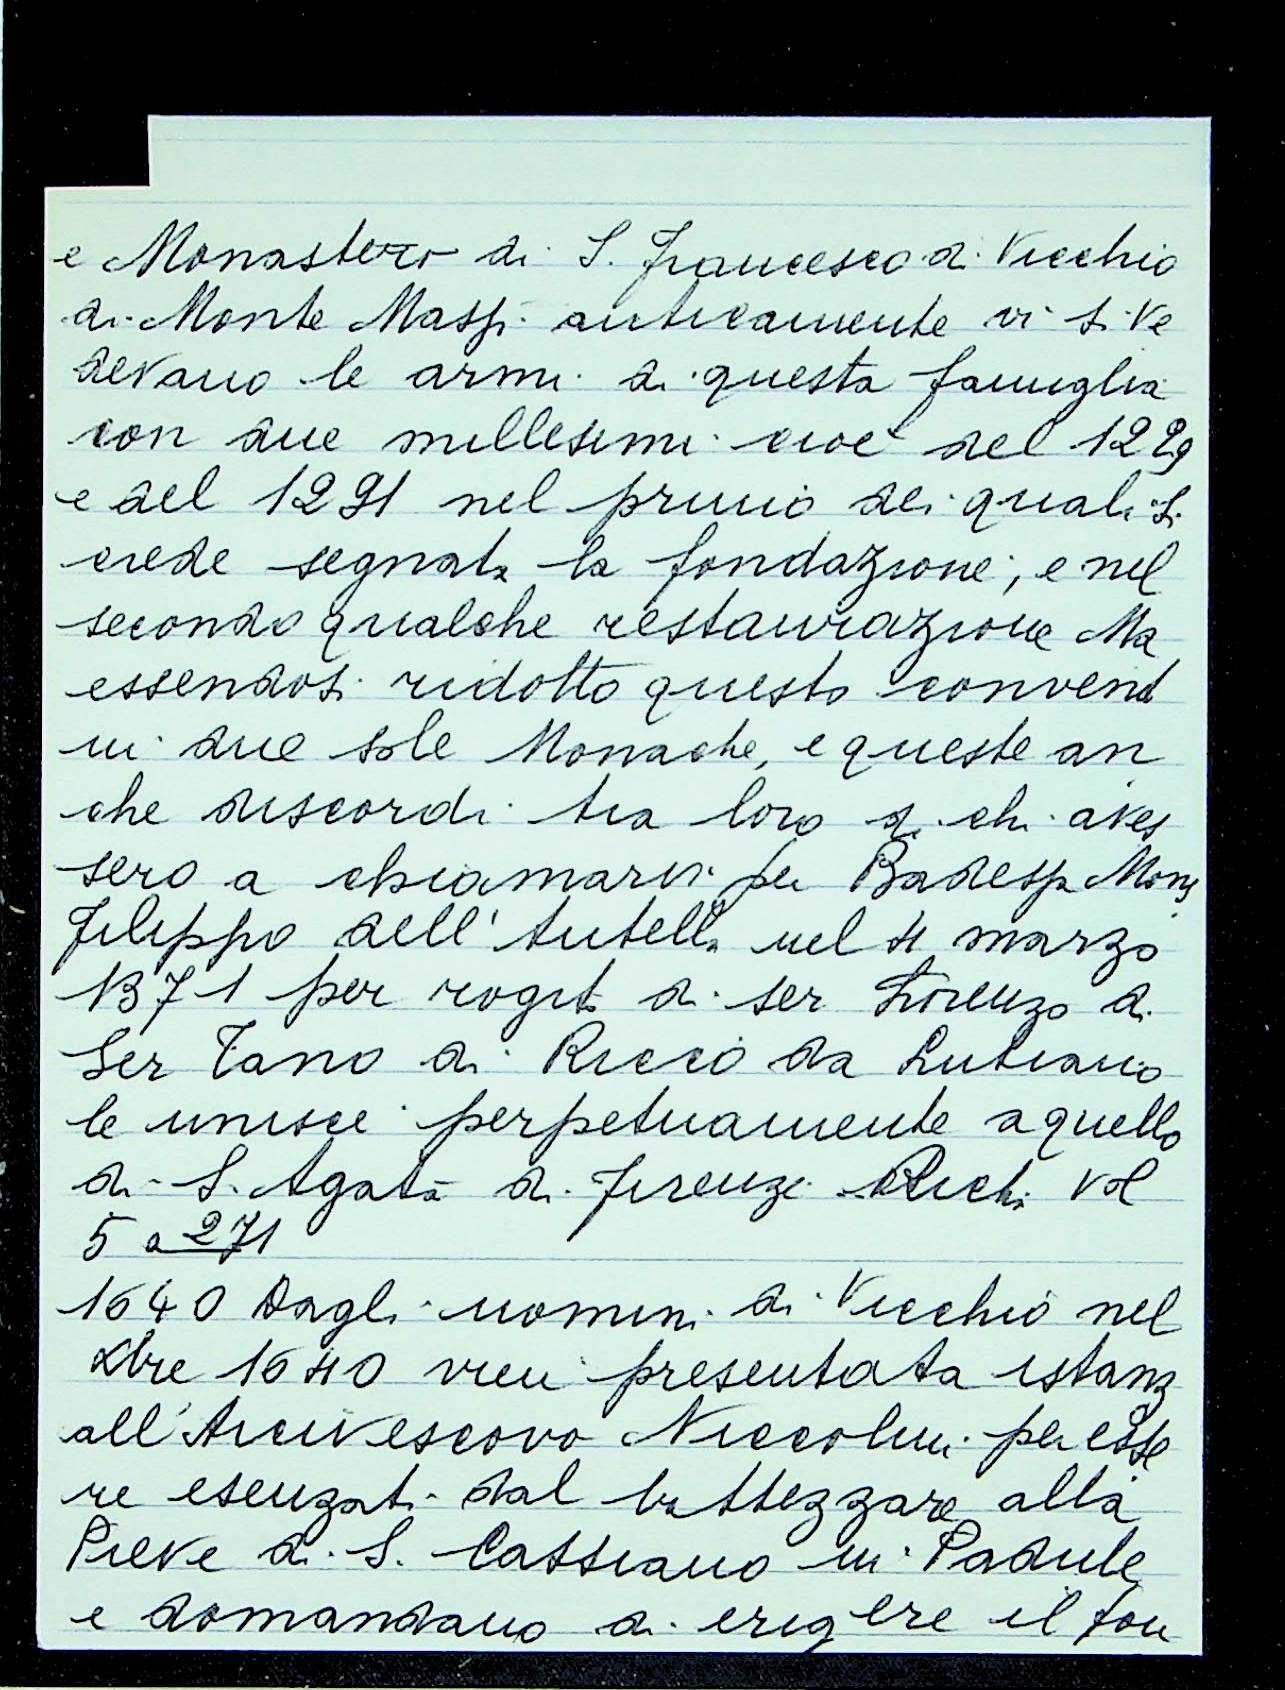 e Monastero di S. Francesco di Vicchio
di Monte Massi anticamente vi si ve
devano le armi di questa famiglia
con due millesimi cioè del 1229
e del 1291 nel primo dei quali si
crede segnata la fondazione, e nel
secondo qualche restaurazione Ma
essendosi ridotto questo convento
in due sole Monache, e queste an
che discordi tra loro di chi aves
sero a chiamarsi per Badessa Mons
Filippo dell'Antella nel 4 marzo
1371 per rogito di ser Lorenzo di
Ser Tano di Ricco da Lutiano
le unisce perpetuamente a quello
di S. Agata di Firenze Richi Vol
5 a 271
1640 Dagli uomini di Vicchio nel
Xbre 1640 vien presentata istanza
all'Arcivescovo Niccolini per esse
re esenzati dal battezzare alla
Pieve di S. Cassiano in Padule
e domandano di erigere il fon